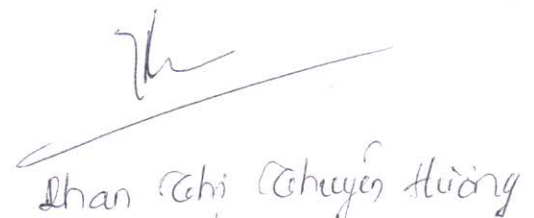 Phan Thị Thuyến Hường